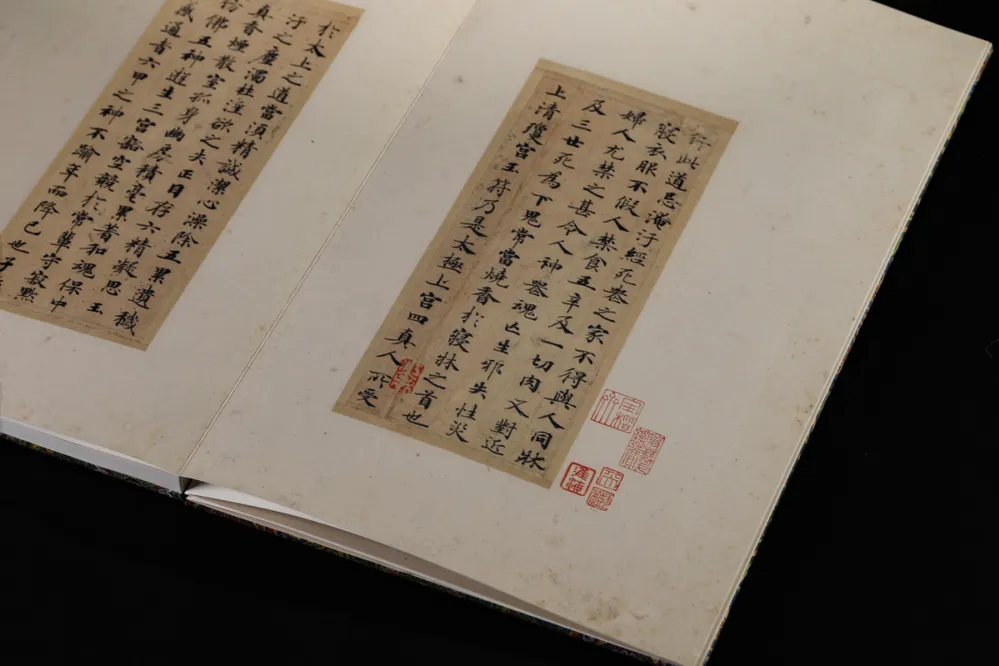 行此道忌淹汙經死喪之家不得與人同牀
寢衣服不假人禁食五辛及一切肉又對近
婦人尤禁之甚令人神喪魂亡生邪失性災
及三世死為下鬼常當燒香於寢牀之首也
上清瓊宮玉符乃是太極上宮四真人所受
於太上之道當須精誠潔心澡除五累遺穢
汙之塵濁杜淫欲之失正目存六精凝思玉
真香煙散室孤身幽房積毫累著和魂保中
仿佛五神遊生三宮豁空競於常輩守寂默
感通者六甲之神不踰年而降已也子